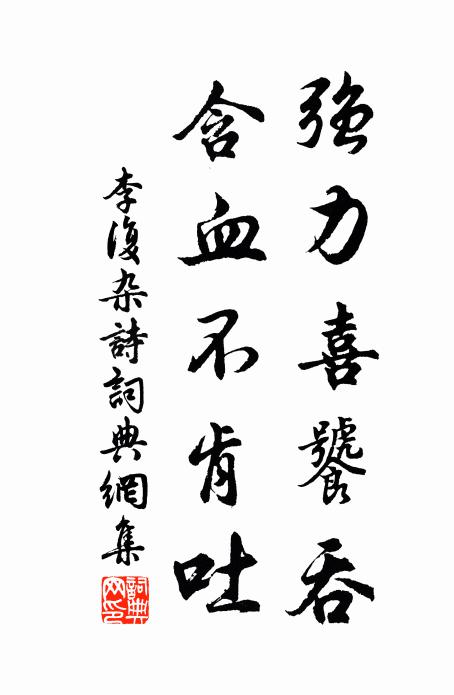 強力喜饕吞
含血不肯吐
李復杂詩詞典網集
詞典网印